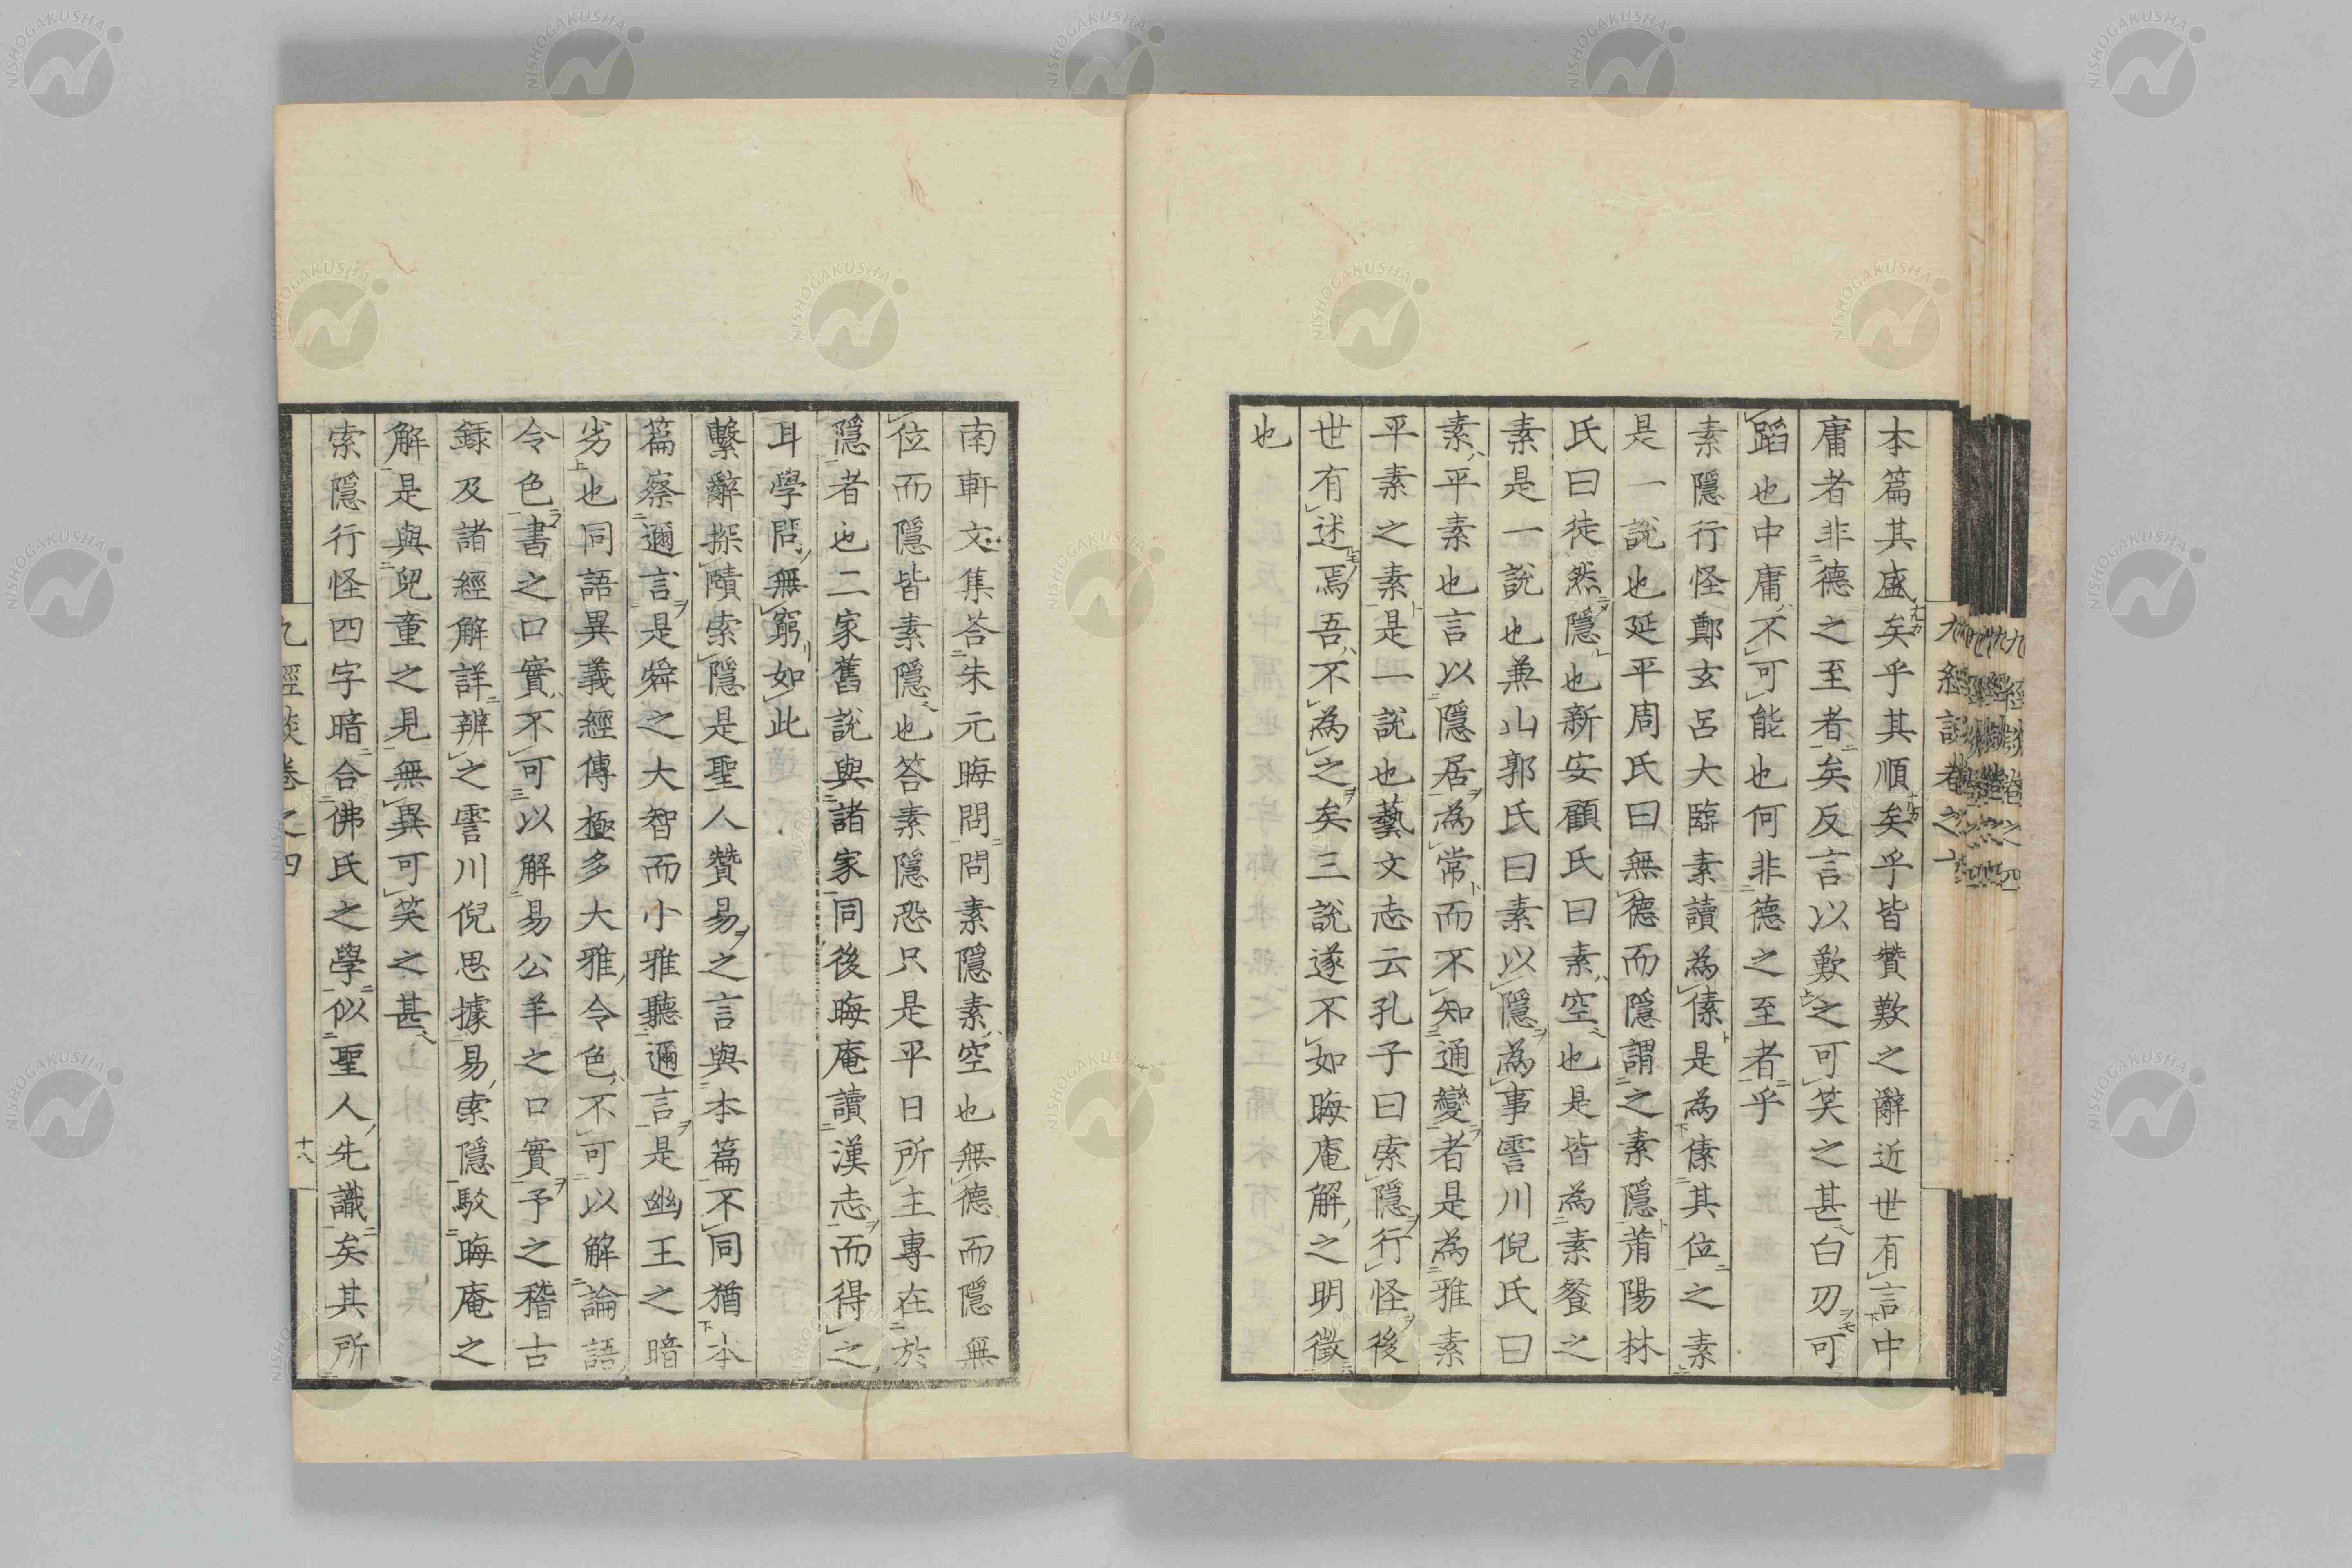 本篇其盛矣乎其順矣乎皆贊歎之辭近世有言中
庸者非德之至者矣反言以歎之可笑之甚白刃可
蹈也中庸不可能也何非德之至者乎
素隱行怪鄭玄呂大臨素讀為傃是為傃其位之素
是一說也延平周氏曰無德而隱謂之素隱莆陽林
氏曰徒然隱也新安顧氏曰素空也是皆為素餐之
素是一說也兼山郭氏曰素以隱為事霅川倪氏曰
素平素也言以隱居為常而不知通變者是為雅素
平素之素是一說也藝文志云孔子曰索隱行怪後
世有述焉吾不為之矣三說遂不如晦庵解之明徵
也
南軒文集荅朱元晦問問素隱素空也無德而隱無
位而隱皆素隱也答素隱恐只是平日所主專在於
隱者也二家舊說與諸家同後晦庵讀漢志而得之
耳學問無窮如此
繫辭探賾索隱是聖人贊易之言與本篇不同猶本
篇察邇言是舜之大智而小雅聽邇言是幽王之暗
劣也同語異義經傳極多大雅令色不可以解論語
令色書之口實不可以解易公羊之口實予之稽古
錄及諸經解詳辨之霅川倪思據易索隱駁晦庵之
解是與兒童之見無異可笑之甚
索隱行怪四字暗合佛氏之學似聖人先識矣其所
九經談卷之四
十八